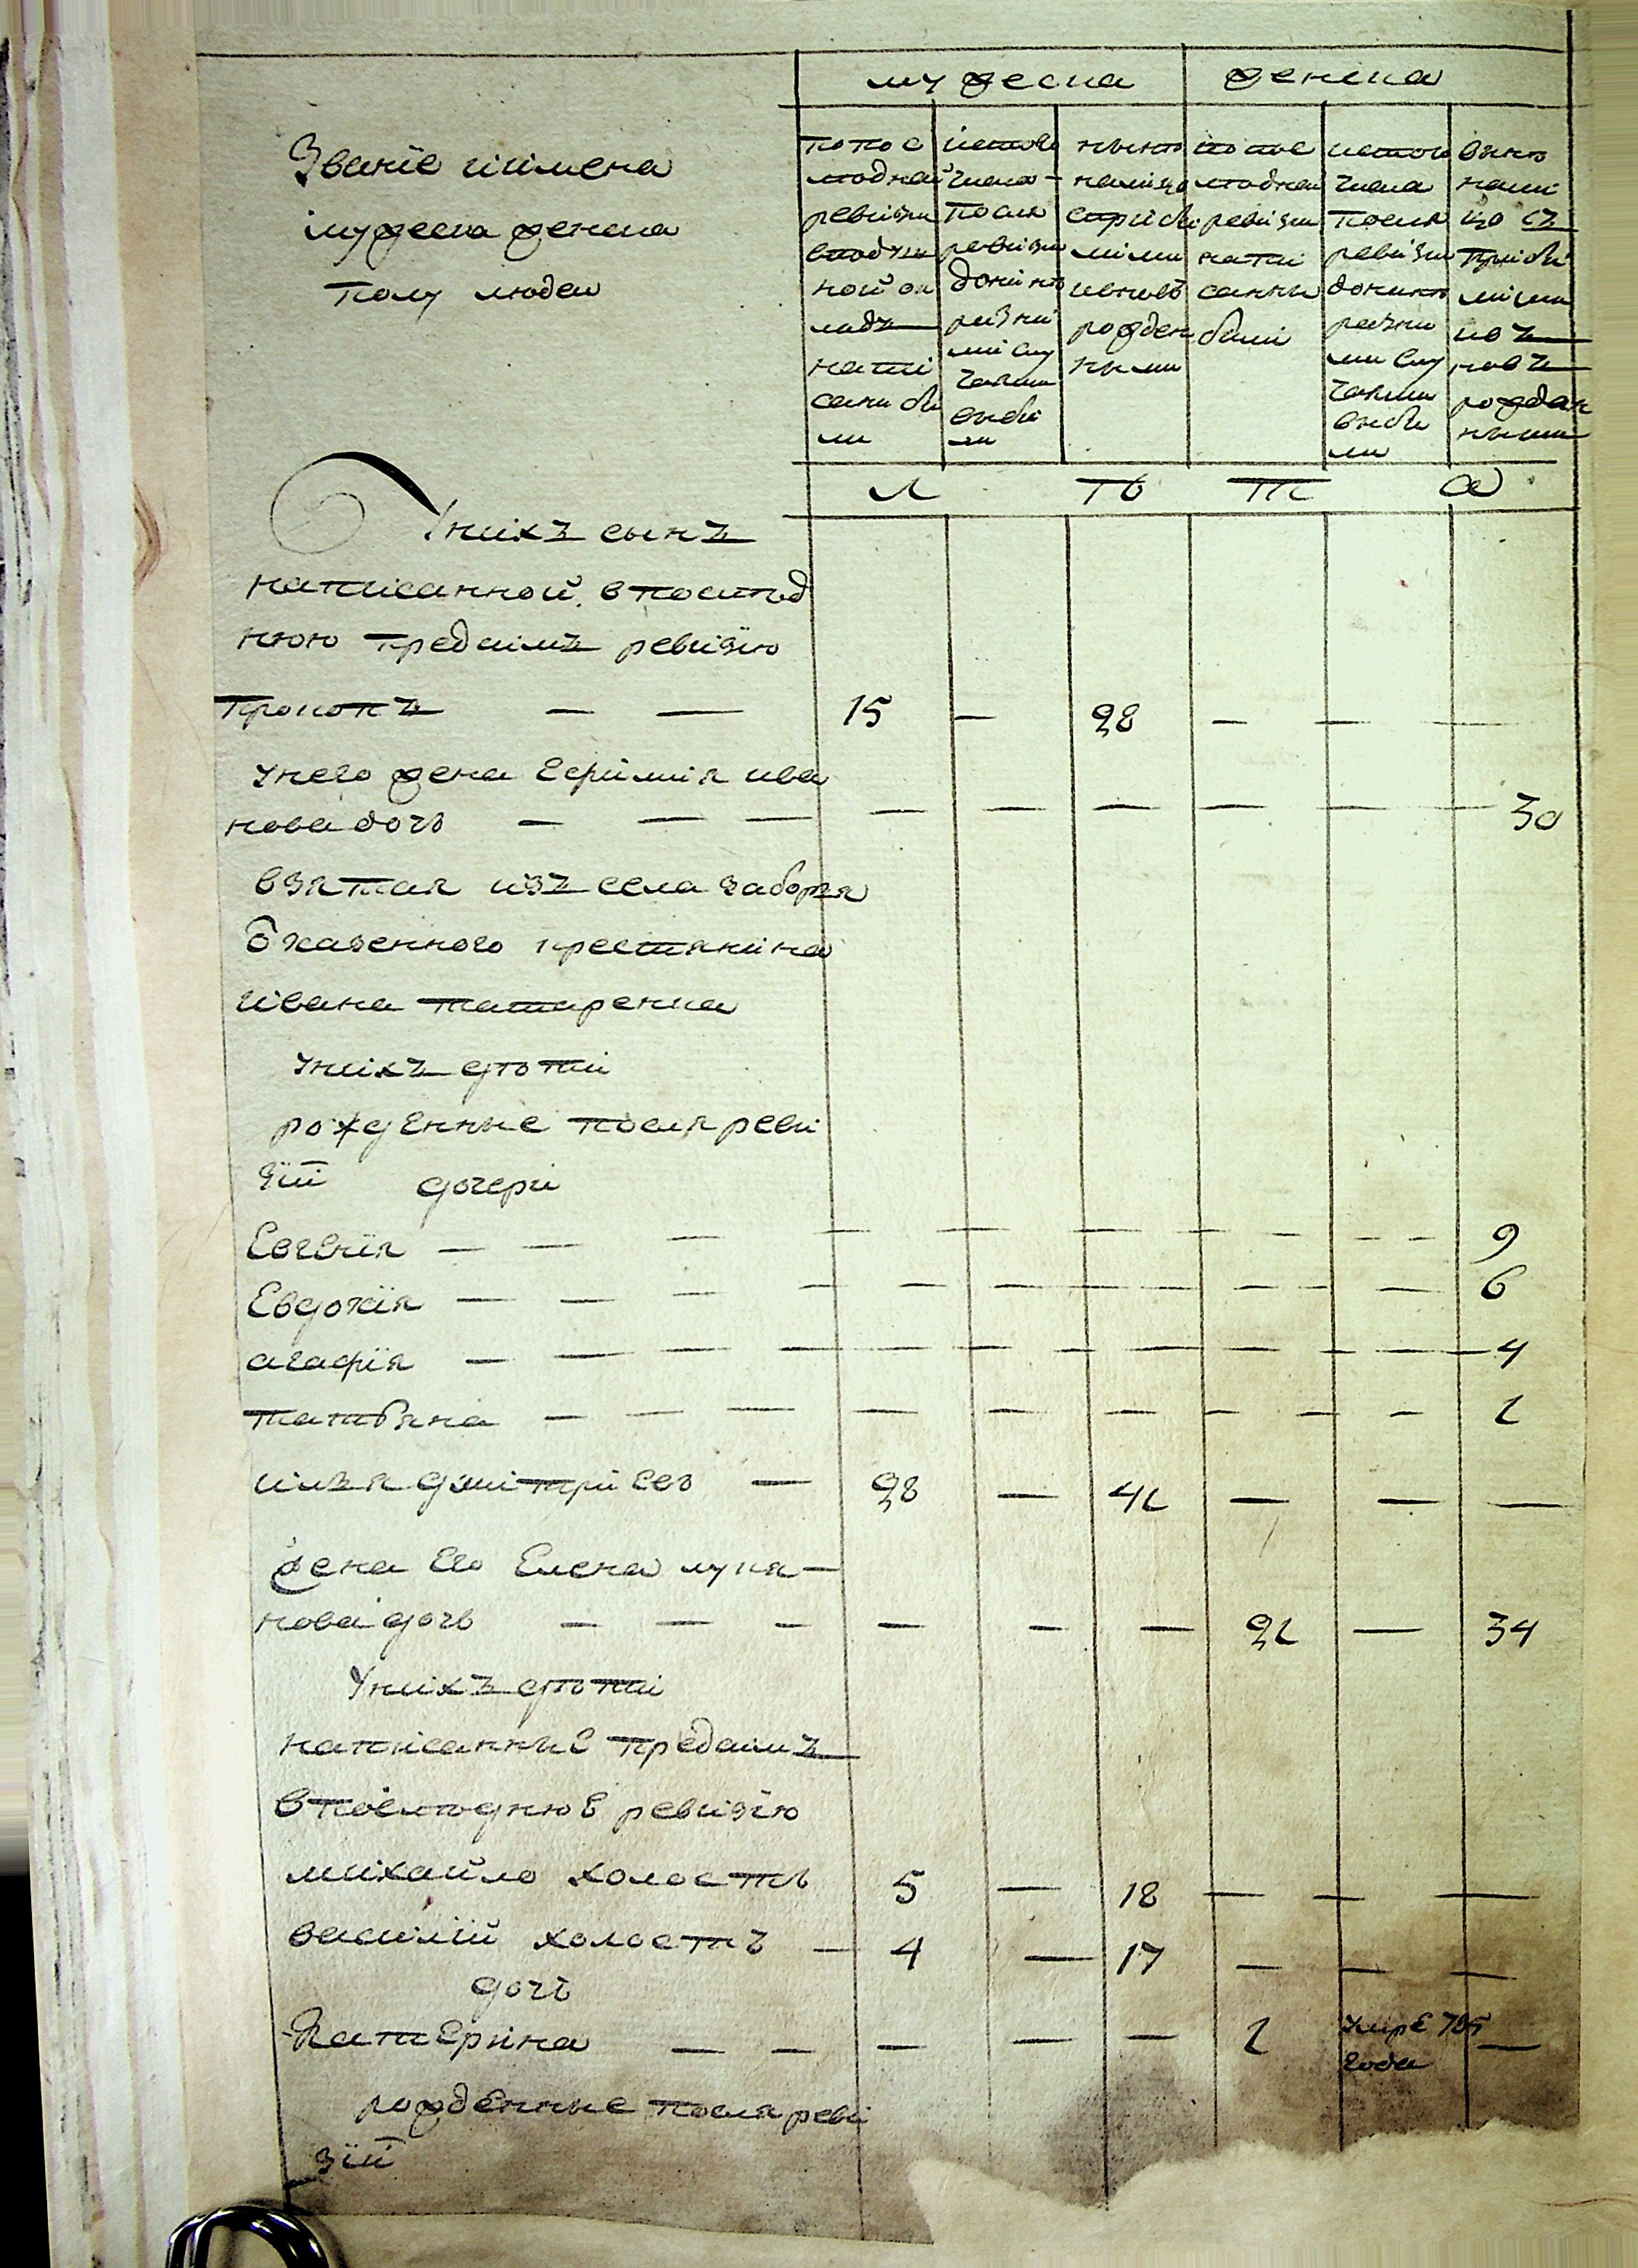 мужеска женска
Званіе иимена
мужеска женска
полу людей
попос
лѣдней
ревизіи
вподуш
ной ок
ладъ
напи
саны бы
ли
исътого
числа
после
ревизіи
донынѣ
разны
ми слу
чаями
выбы
ли
нынѣ
налицо
сприбы
лыми
ивновь
рожден
ными
по пос
лѣдней
ревизіи
напи
санны
были
исътого
числа
после
ревизіи
донынѣ
разны
ми слу
чаями
выбы
ли
нынѣ
нали
цо съ
прибы
лыми
изъ
новъ
рожден
ными
Л Ѣ Т А
Унихъ сынъ
написанной впослѣд
нюю предсимъ ревизію
Прокопъ — — 15 — 28 — — —
Унего жена Ефимія ива
нова дочь — — — — — — — — — 30
взятая изъ села заборья
казенного крестянина
Ивана татаренка
Унихъ дѣти
рожденные после реви
зіи дочери
Евгенія — — — — — — — — — 9
Евдокія — — — — — — — — — 6
агафія — — — — — — — — — 4
татьяна — — — — — — — — — 2
илья дмитриевъ — 28 — 42 — — —
Жена Его Елена лукя—
нова дочь — — — — — — 22 — 34
Унихъ дѣти
написанные предсимъ
впослѣднюю ревизію
михайло холостъ 5 — 18 — — —
василій холостъ — 4 — 17 — — —
дочь
Катерина — — — — — 2 умре 785 —
года
рожденные после реви
зіи